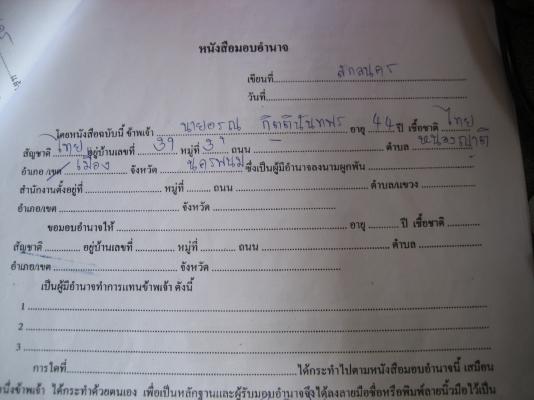 หนังสือมอบอำนาจ
เขียนที่ สกลนคร
วันที่
โดยหนังสือฉบับนี้ ข้าพเจ้า นายอรณ กิตตินันทพร อายุ 44 ปี เชื้อชาติ ไทย
สัญชาติ ไทย อยู่บ้านเลขที่ 39 หมู่ที่ 3 ถนน - ตำบล หนองญาติ
อำเภอ/เขต เมือง จังหวัด นครพนม ซึ่งเป็นผู้มีอำนาจลงนามผูกพัน
สำนักงานตั้งอยู่ที่ หมู่ที่ ถนน ตำบล/แขวง
อำเภอ/เขต จังหวัด
ขอมอบอำนาจให้ อายุ ปี เชื้อชาติ
สัญชาติ อยู่บ้านเลขที่ หมู่ที่ ถนน ตำบล
อำเภอ/เขต จังหวัด
เป็นผู้มีอำนาจทำการแทนข้าพเจ้า ดังนี้
1
2
3
การใดที่ ได้กระทำไปตามหนังสือมอบอำนาจนี้ เสมือน
นึ่งข้าพเจ้า ได้กระทำด้วยตนเอง เพื่อเป็นหลักฐานและผู้รับมอบอำนาจจึงได้ลงลายมือชื่อหรือพิมพ์ลายนิ้วมือไว้เป็น